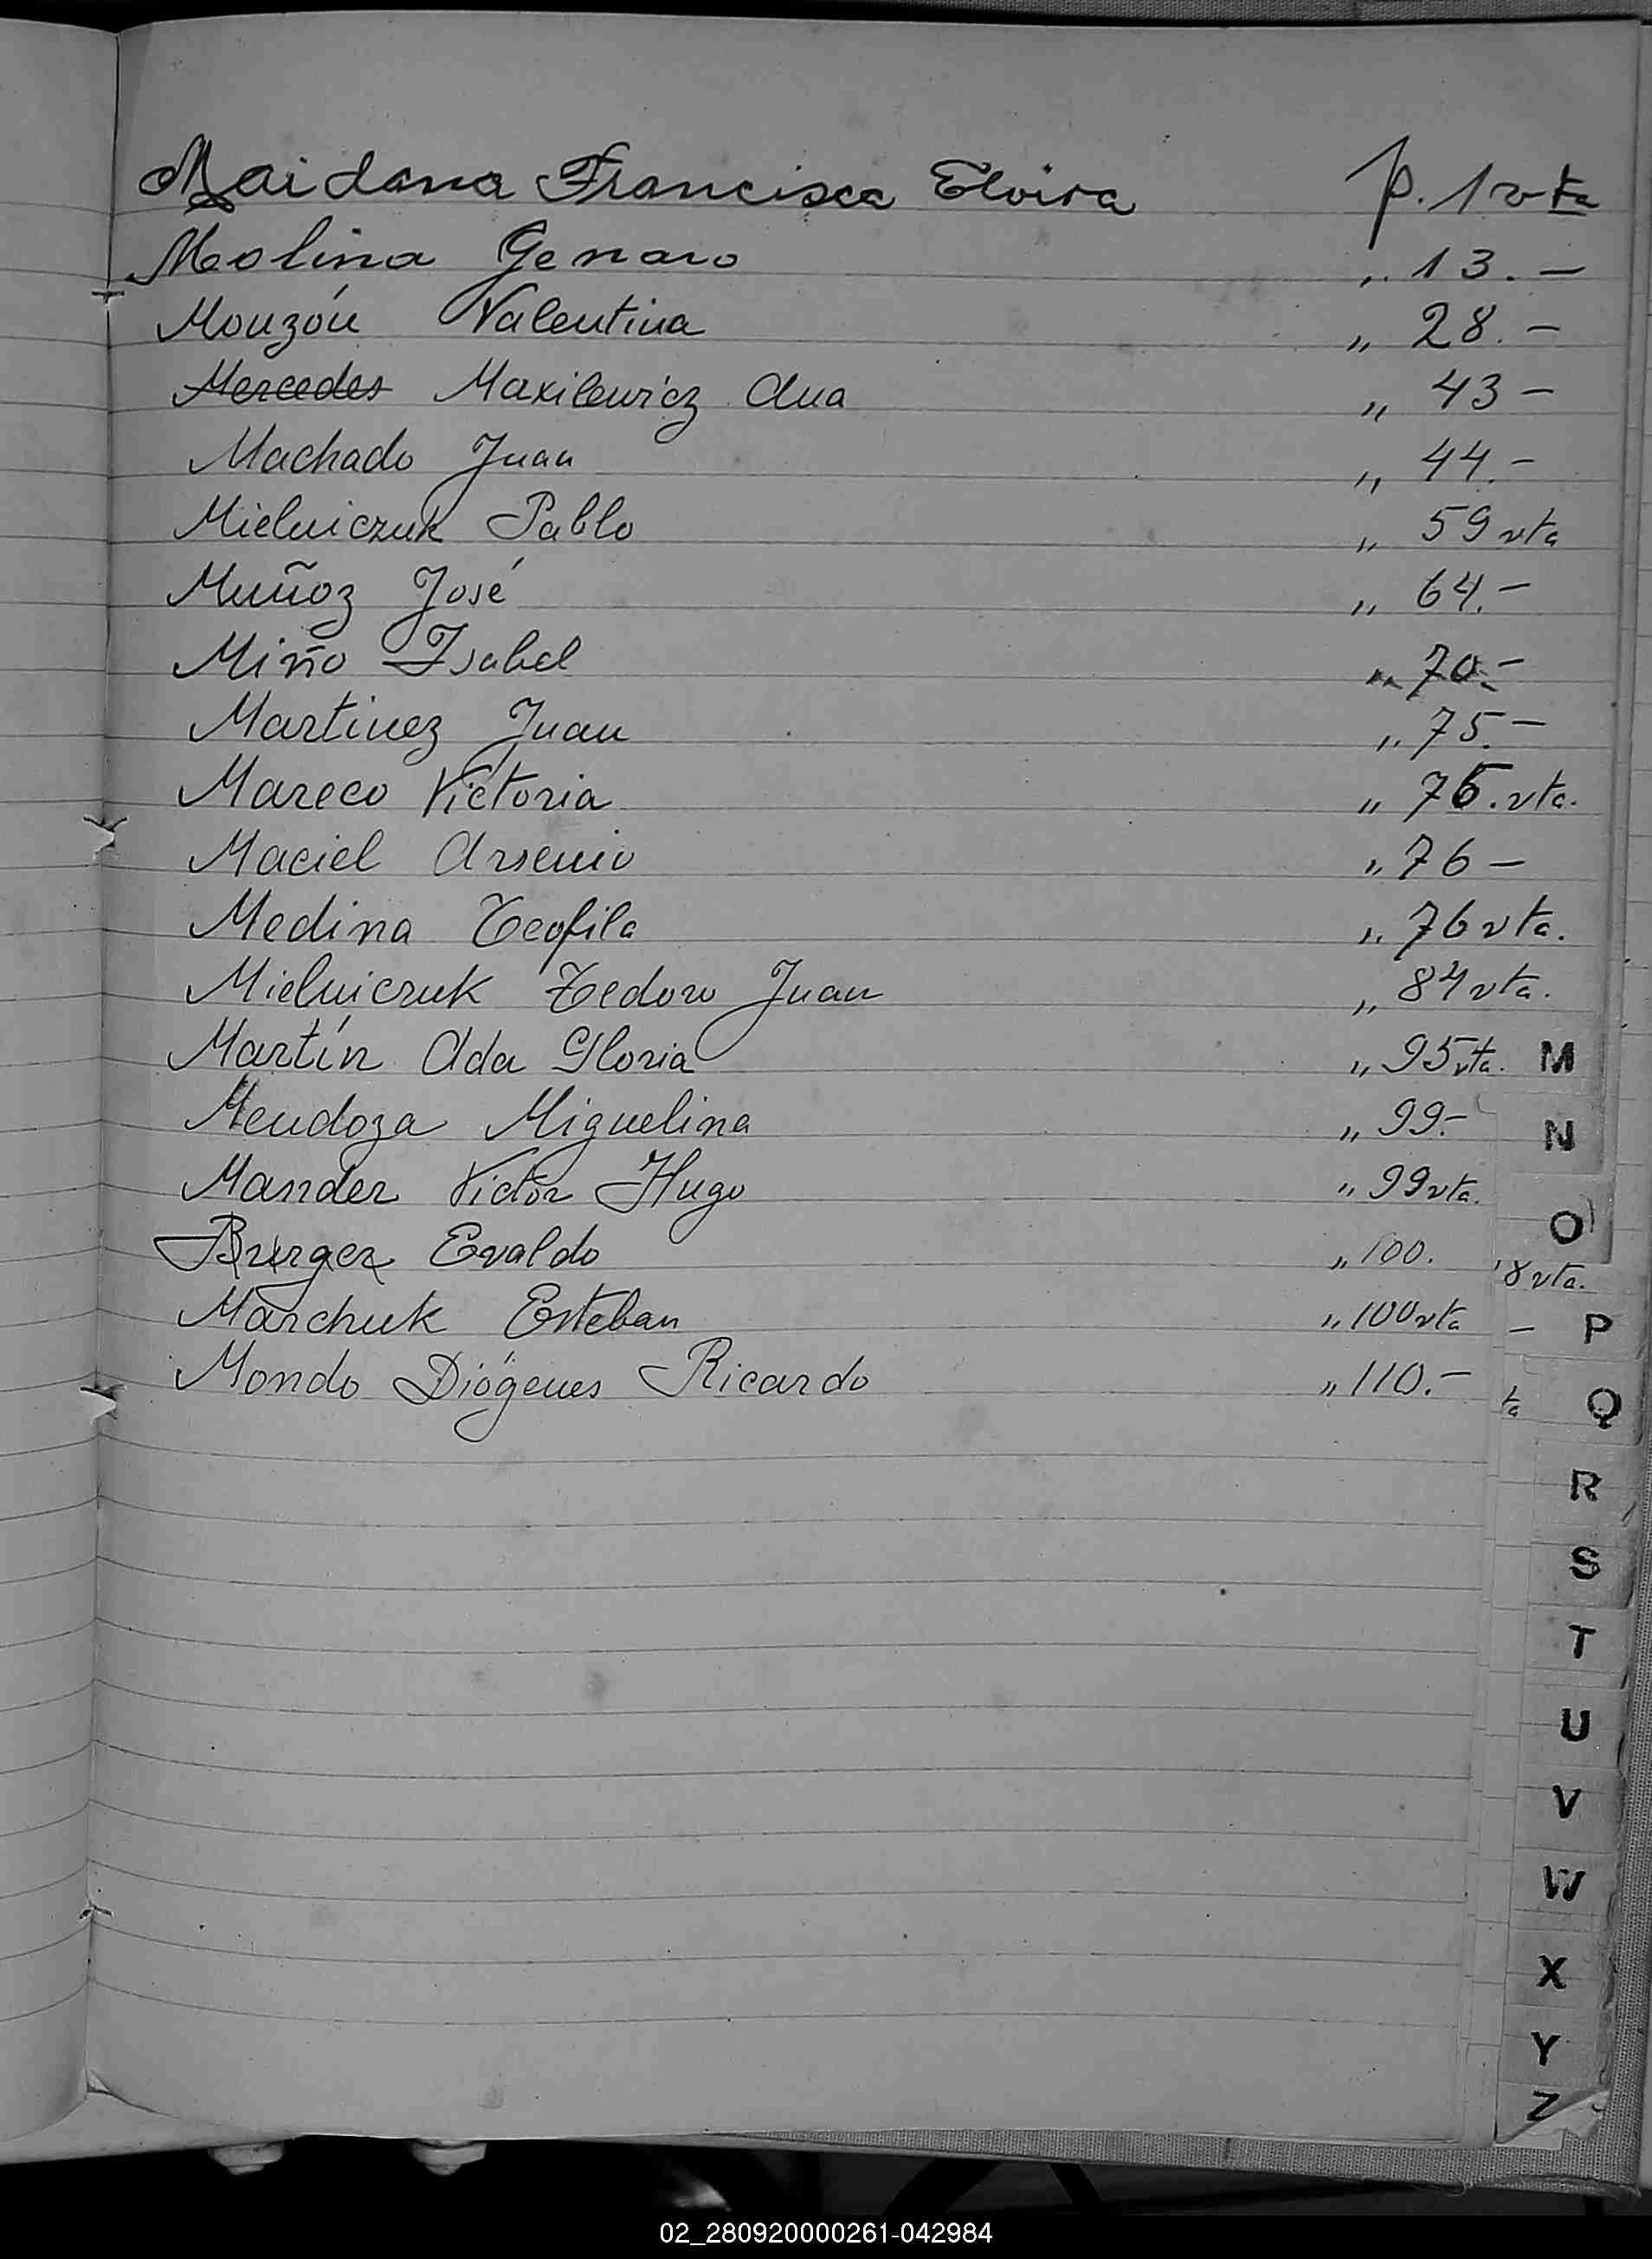 Maidana Francisca Elvira p. 1 vta
Molina Genaro „ 13. —
Mouzón Valentina „ 28. —
Mercedes Maxilewicz Ana „ 43 —
Machado Juan „ 44. —
Mielniczuk Pablo „ 59 vta
Muñoz José „ 64. —
Miño Isabel „ 70. —
Martinez Juan „ 75. —
Mareco Victoria „ 75. vta.
Maciel Arsenio „ 76 —
Medina Teofila „ 76 vta.
Mielniczuk Tedoro Juan „ 84 vta.
Martín Ada Gloria „ 95 vta. M
Mendoza Miguelina „ 99. — N
Mander Victor Hugo „ 99 vta.
O
Burger Evaldo „ 100. 8 vta.
Marchuk Esteban „ 100 vta — P
Mondo Diógenes Ricardo „ 110. — ta Q
R
S
T
U
V
W
X
Y
Z
02_280920000261-042984